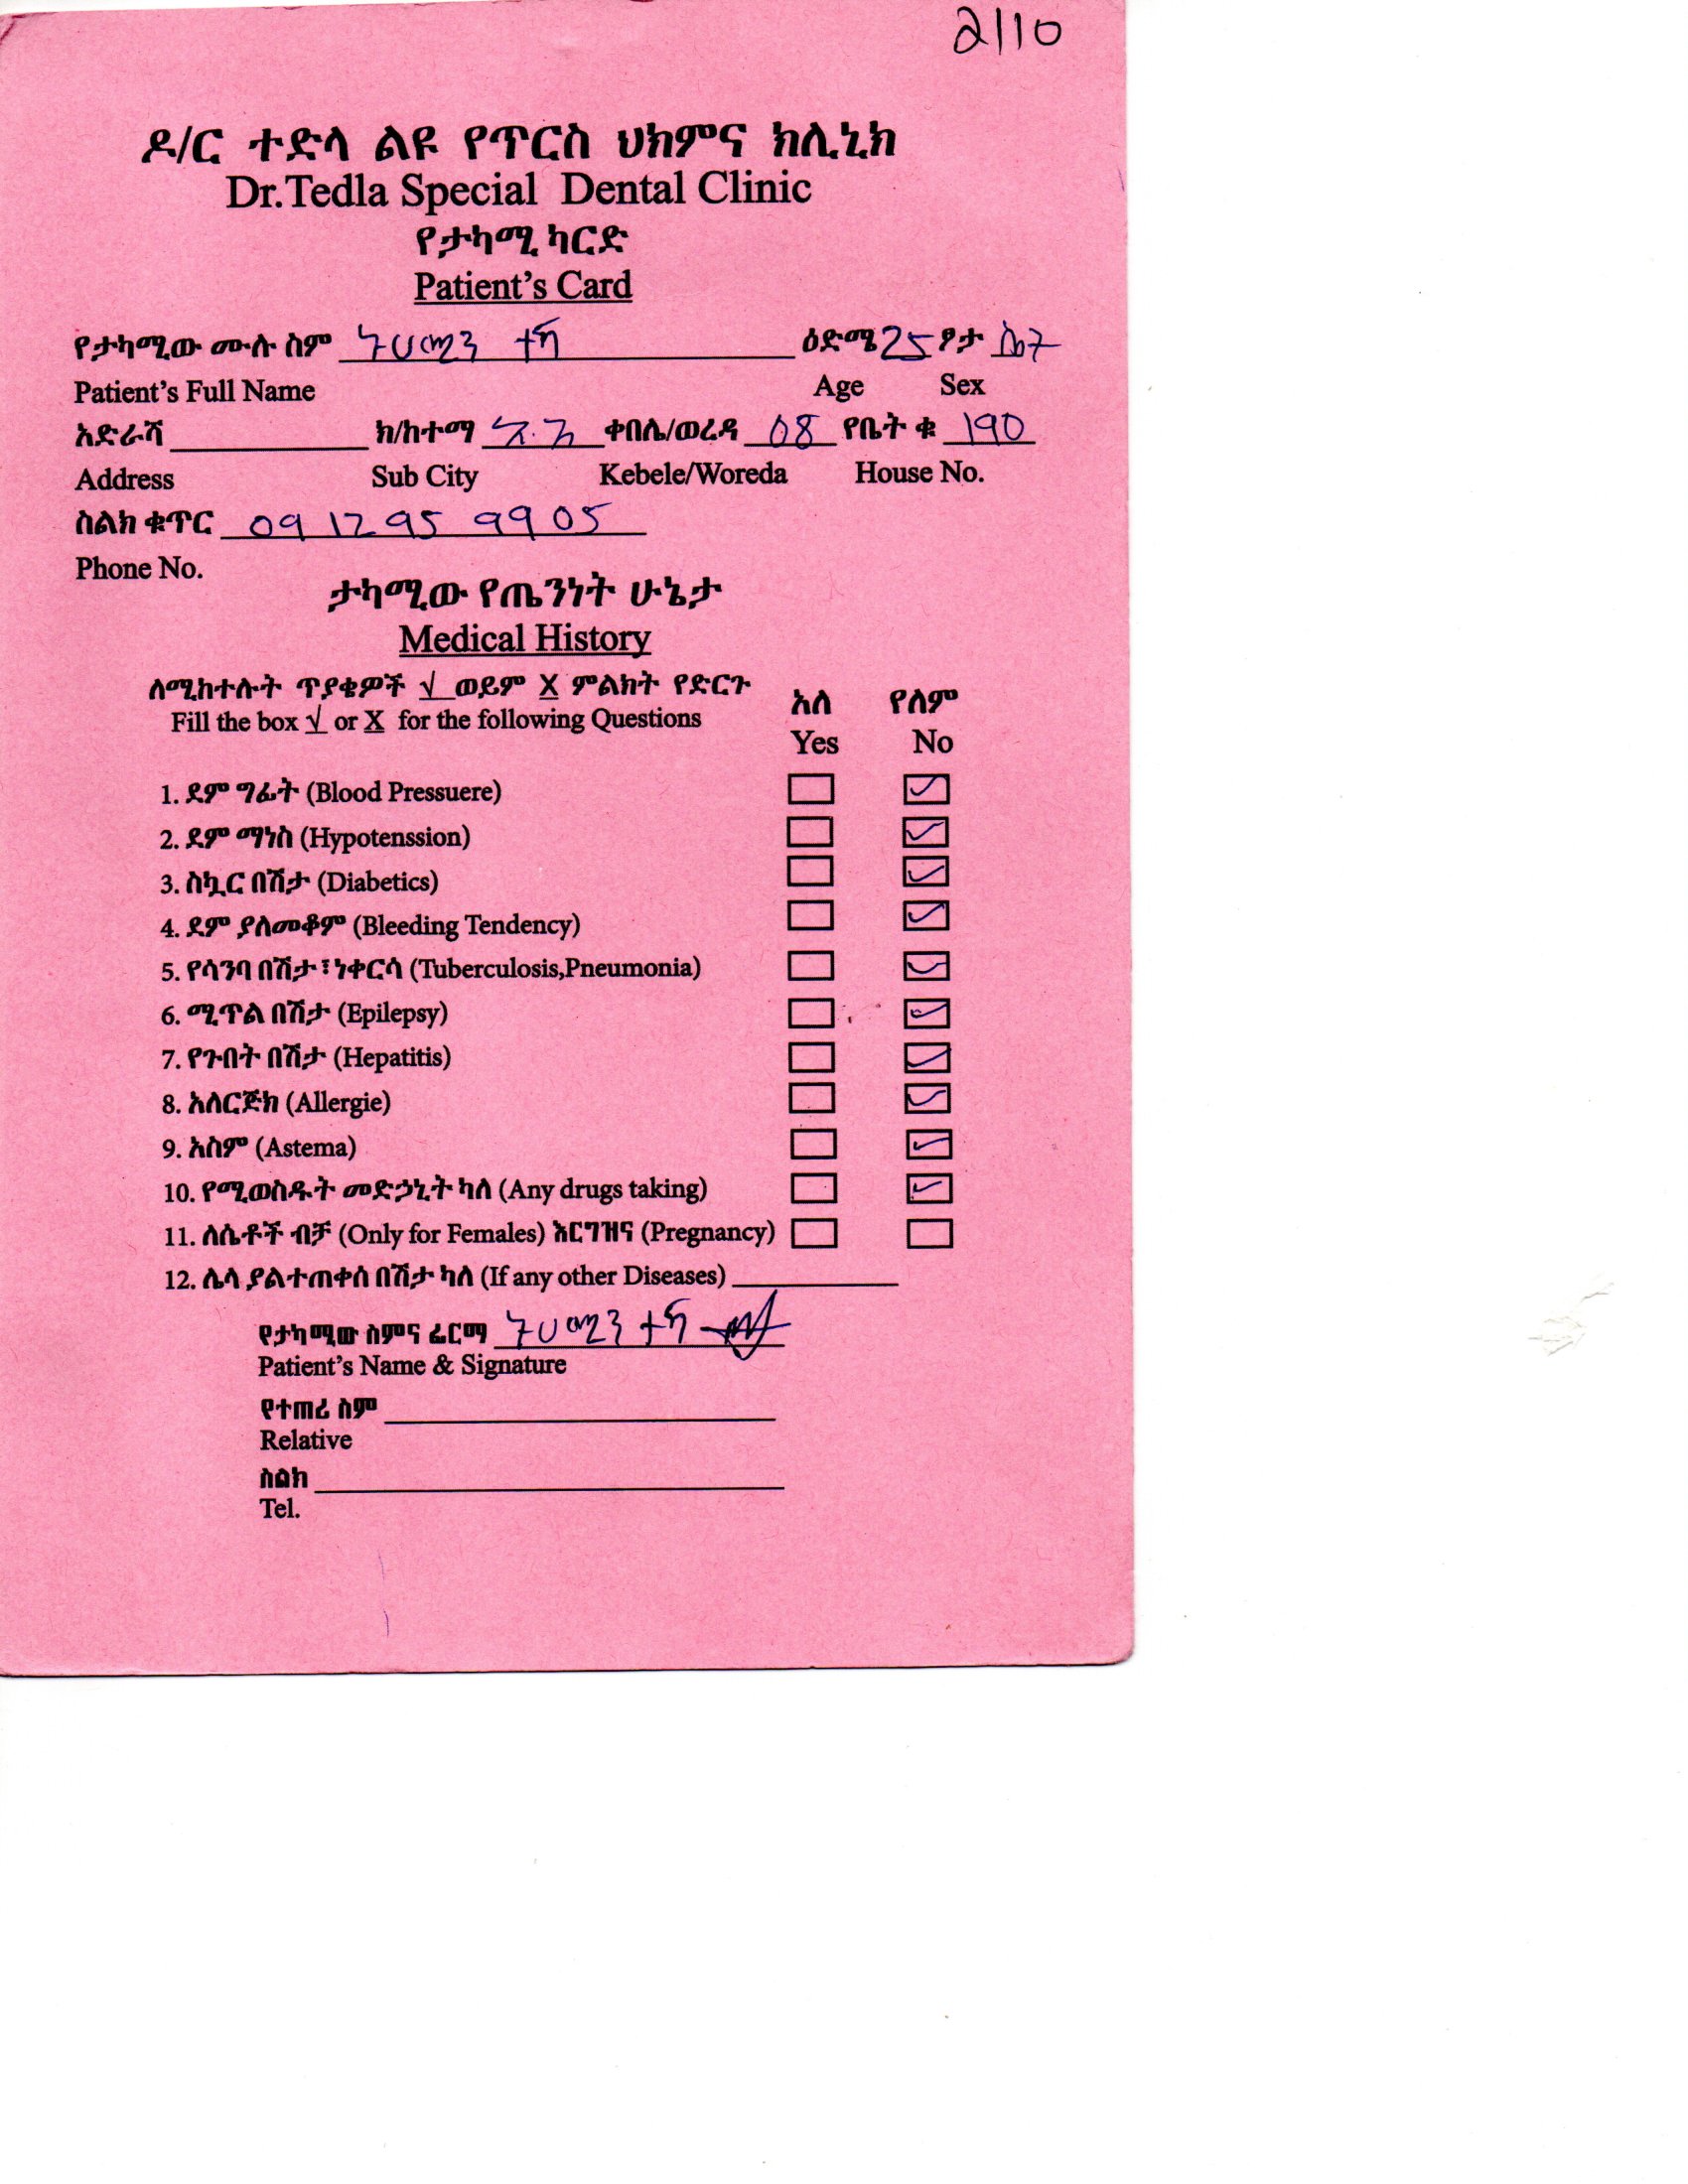 2110
ዶ/ር ተድላ ልዩ የጥርስ ህክምና ክሊኒክ
Dr.Tedla Special Dental Clinic
የታካሚ ካርድ
Patient's Card
የታካሚው ሙሉ ስም ዕድሜ 25 ፆታ ሴት
Patient's Full Name Age Sex
አድራሻ ክ/ከተማ ቀበሌ/ወረዳ 08 የቤት ቁ 190
Address Sub City Kebele/Woreda House No.
ስልክ ቁጥር 09 12 95 99 05
Phone No.
ታካሚው የጤንነት ሁኔታ
Medical History
ለሚከተሉት ጥያቄዎች √ ወይም X ምልክት የድርጉ አለ የለም
Fill the box √ or X for the following Questions Yes No
1. ደም ግፊት (Blood Pressuere)
2. ደም ማነስ (Hypotenssion)
3. ስኳር በሽታ (Diabetics)
4. ደም ያለመቆም (Bleeding Tendency)
5. የሳንባ በሽታ፣ነቀርሳ (Tuberculosis,Pneumonia)
6. ሚጥል በሽታ (Epilepsy)
7. የጉበት በሽታ (Hepatitis)
8. አለርጅክ (Allergie)
9. አስም (Astema)
10. የሚወስዱት መድኃኒት ካለ (Any drugs taking)
11. ለሴቶች ብቻ (Only for Females) እርግዝና (Pregnancy)
12. ሌላ ያልተጠቀሰ በሽታ ካለ (If any other Diseases)
የታካሚው ስምና ፊርማ
Patient's Name & Signature
የተጠሪ ስም
Relative
ስልክ
Tel.